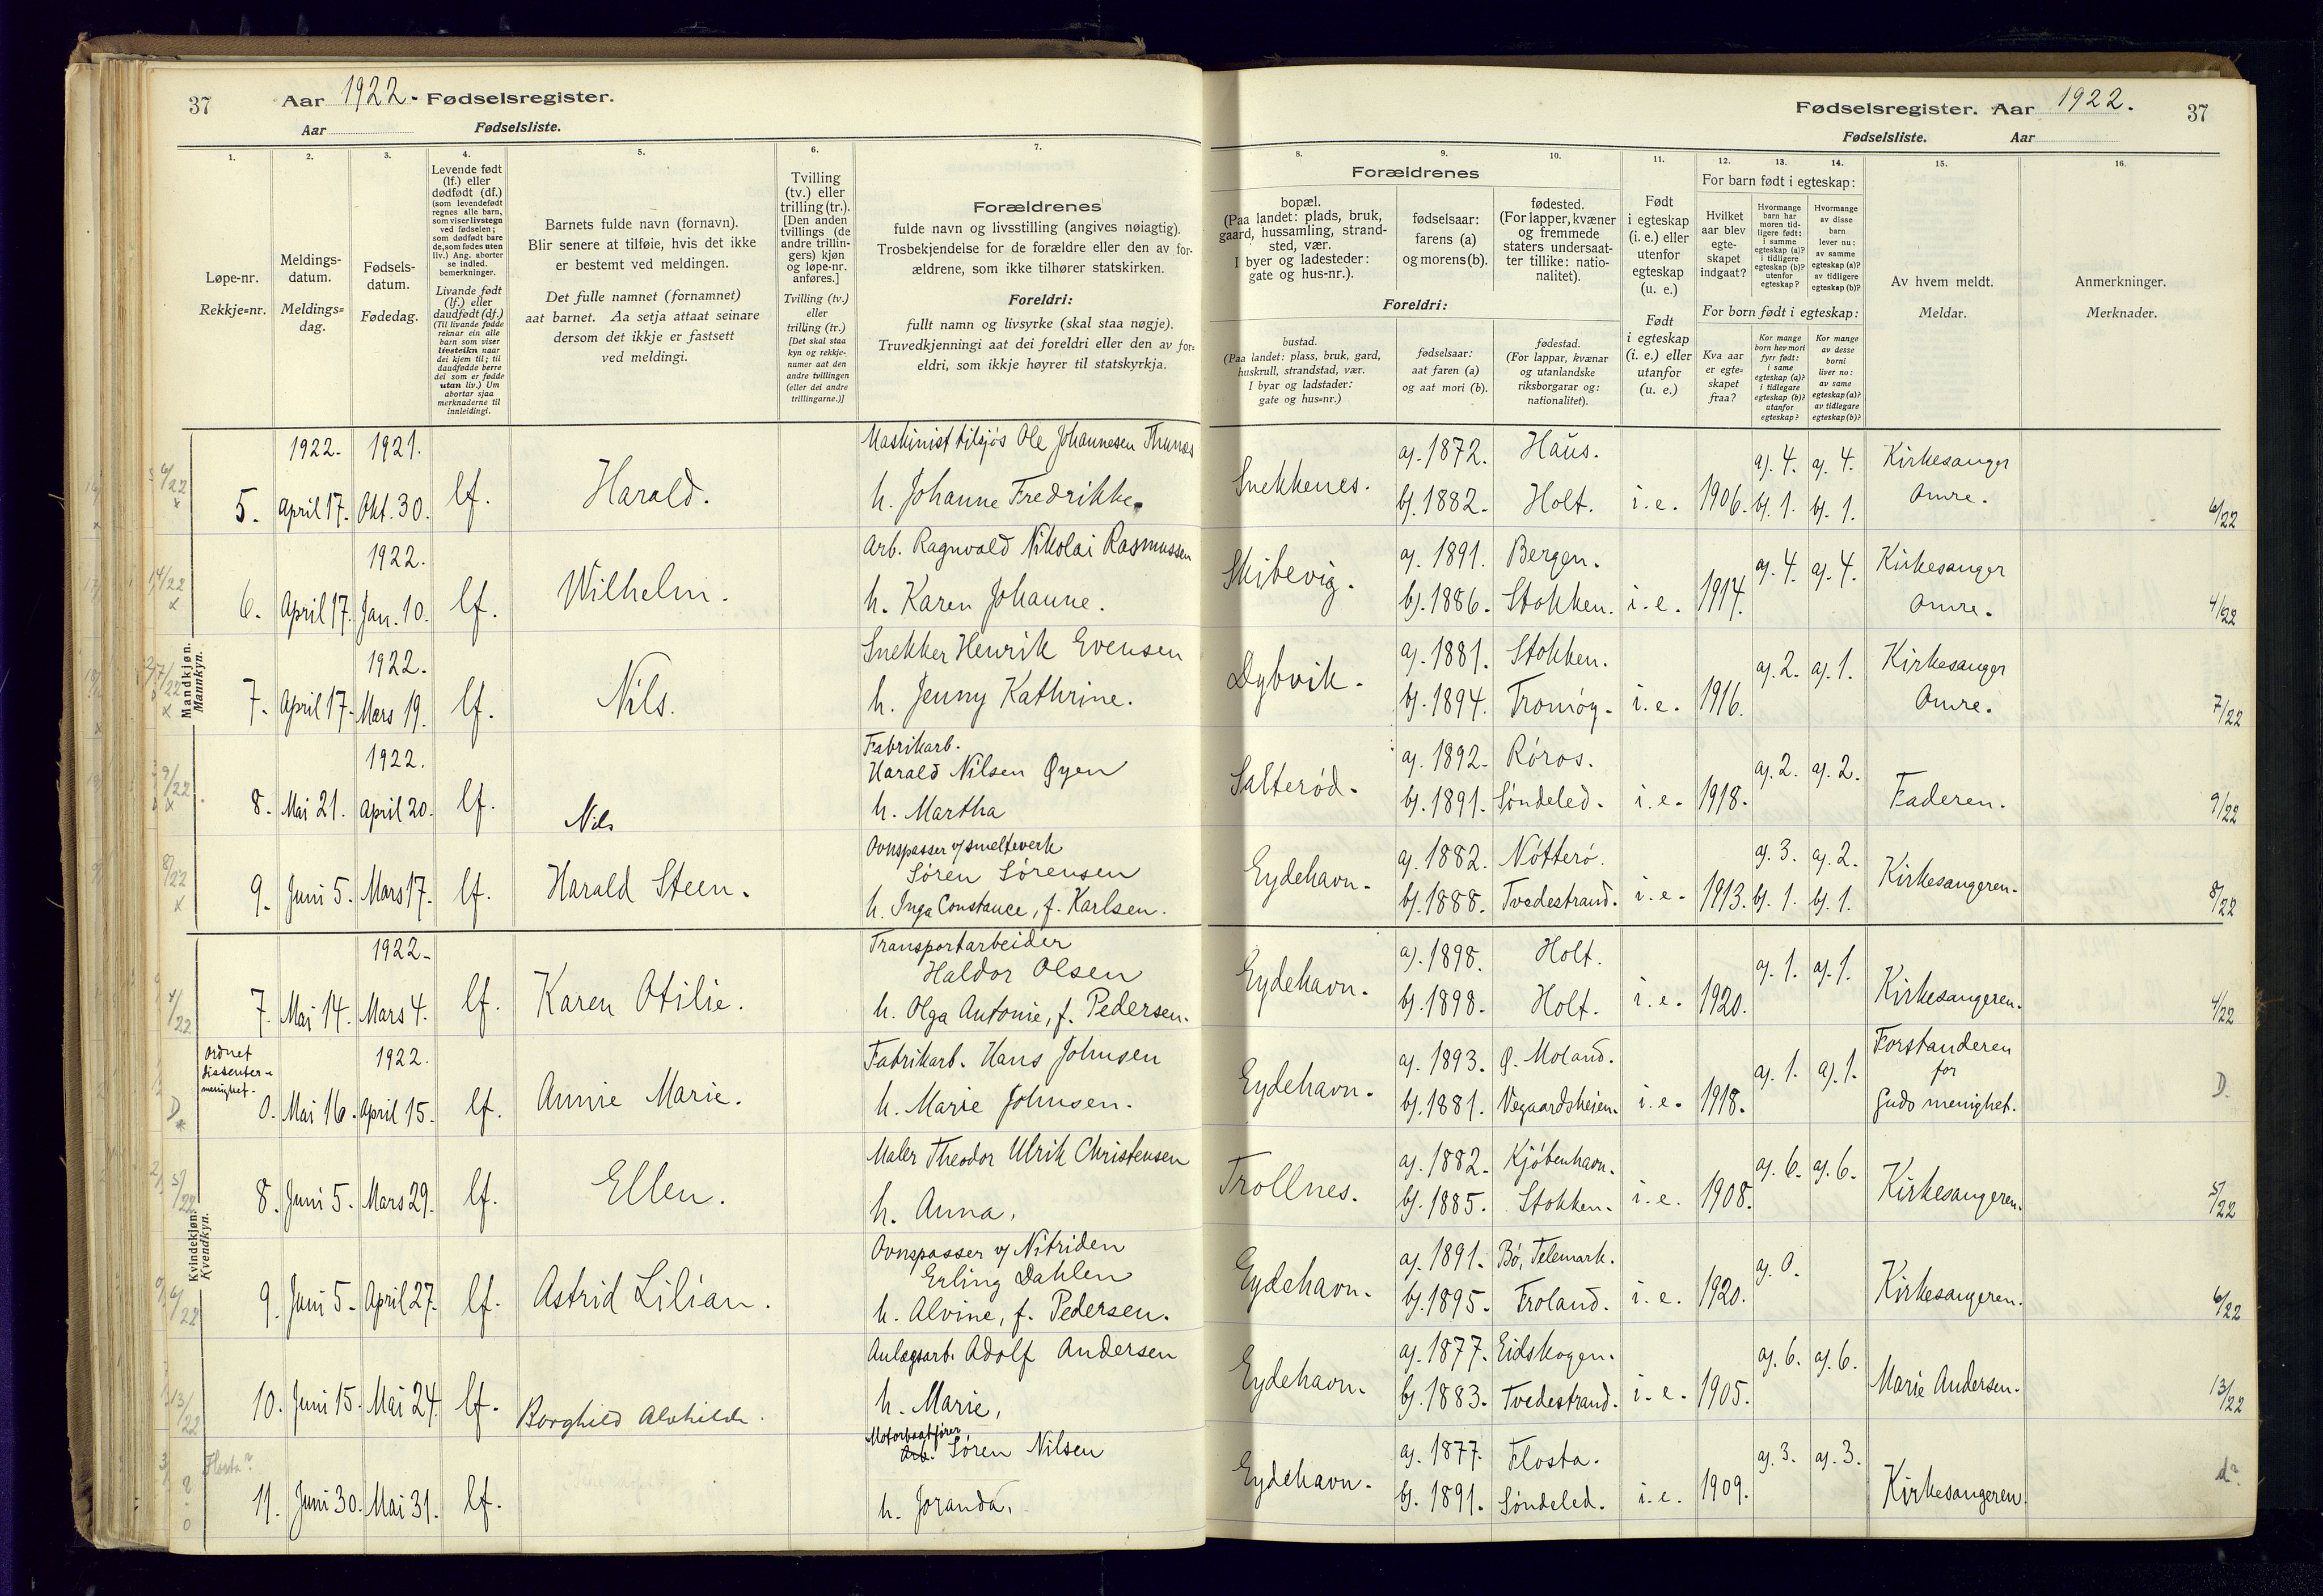 37 Aar 1922. Fødselsregister.
Aar Fødselsliste.
1. 2. 3. 4. 5. 6. 7.
Løpe-nr.
Rekkje-nr.
Meldings-
datum.
Meldings-
dag.
Fødsels-
datum.
Fødedag.
Levende født
(lf.) eller
dødfødt (df.)
(som levendefødt
regnes alle barn,
som viser livstegn
ved fødselen;
som dødfødt bare
de, som fødes uten
liv.) Ang. aborter
se indled.
bemerkninger.
Livande født
(lf.) eller
daudfødt (df.)
(Til livande fødde
reknar ein alle
born som viser
livsteikn naar
dei kjem til; til
daudfødde berre
dei som er fødde
utan liv.) Um
abortar sjaa
merknaderne til
innleidingi.
Barnets fulde navn (fornavn).
Blir senere at tilføie, hvis det ikke
er bestemt ved meldingen.
Det fulle namnet (fornamnet)
aat barnet. Aa setja attaat seinare
dersom det ikkje er fastsett
ved meldingi.
Tvilling
(tv.) eller
trilling (tr.).
[Den anden
tvillings (de
andre trillin-
gers) kjøn
og løpe-nr.
anføres.]
Tvilling (tv.)
eller
trilling (tr.)
[Det skal staa
kyn og rekkje-
numer aat den
andre tvillingen
(eller dei andre
trillingarne.)]
Forældrenes
fulde navn og livsstilling (angives nøiagtig).
Trosbekjendelse for de forældre eller den av for-
ældrene, som ikke tilhører statskirken.
Foreldri:
fullt namn og livsyrke (skal staa nøgje).
Truvedkjenningi aat dei foreldri eller den av for-
eldri, som ikkje høyrer til statskyrkja.
Mandkjøn.
Mannkyn.
1922. 1921. Maskinist tilsjøs Ole Johannesen
5. April 17. Okt. 30. lf. Harald. h. Johanne Fredrikke.
1922. Arb. Ragnvald Nikolai Rasmussen
6. April 17. Jan. 10. lf. Wilhelm. h. Karen Johanne.
1922. Snekker Henrik Evensen
7. April 17. Mars 19. lf. Nils. h. Jenny Kathrine.
1922. Fabrikarb.
Harald Nilsen Øyen
8. Mai 21. April 20. lf. Nils h. Martha
Ovnspasser v/ smelteverk
Søren Sørensen
9. Juni 5. Mars 17. lf. Harald Steen. h. Inga Constance, f. Karlsen.
Kvindekjøn.
Kvendkyn.
1922. Transportarbeider
Haldor Olsen
7. Mai 14. Mars 4. lf. Karen Otilie. h. Olga Antonie, f. Pedersen.
Ordnet
dissenter-
menighet.
1922. Fabrikarb. Hans Johnsen
0. Mai 16. April 15. lf. Annie Marie. h. Marie Johnsen.
Maler Theodor Ulrik Christensen
8. Juni 5. Mars 29. lf. Ellen. h. Anna.
Ovnspasser v/ Nitriden
Erling Dahlen
9. Juni 5. April 27. lf. Astrid Lilian. h. Alvine, f. Pedersen.
Anlægsarb. Adolf Andersen
10. Juni 15. Mai 24. lf. Borghild Alvhilde. h. Marie,
Motorbaatfører
Flosta? Arb. Søren Nilsen
11. Juni 30. Mai 31. lf. h. Joranda.
Fødselsregister. Aar 1922. 37
Fødselsliste. Aar
8. 9. 10. 11. 12. 13. 14. 15. 16.
Forældrenes
bopæl.
(Paa landet: plads, bruk,
gaard, hussamling, strand-
sted, vær.
I byer og ladesteder:
gate og hus-nr.).
fødselsaar:
farens (a)
og morens (b).
fødested.
(For lapper, kvæner
og fremmede
staters undersaat-
ter tillike: natio-
nalitet).
Foreldri:
bustad.
(Paa landet: plass, bruk, gard,
huskrull, strandstad, vær.
I byar og ladstader:
gate og hus-nr.)
fødselsaar:
aat faren (a)
og aat mori (b).
fødestad.
(For lappar, kvænar
og utanlandske
riksborgarar og:
nationalitet).
Født
i egteskap
(i. e.) eller
utenfor
egteskap
(u. e.)
Født
i egteskap
(i. e.) eller
utanfor
(u. e.)
For barn født i egteskap:
Hvilket
aar blev
egte-
skapet
indgaat?
Hvormange
barn har
moren tid-
ligere født:
i samme
egteskap (a)?
i tidligere
egteskap (b)?
utenfor
egteskap?
Hvormange
av disse
barn
lever nu:
av samme
egteskap (a)?
av tidligere
egteskap (b)?
For born født i egteskap:
Kva aar
er egte-
skapet
fraa?
Kor mange
born hev mori
fyrr født:
i same
egteskap (a)?
i tidlegare
egteskap (b)?
utanfor
egteskap?
Kor mange
av desse
borni
liver no:
av same
egteskap (a)?
av tidlegare
egteskap (b)?
Av hvem meldt.
Meldar.
Anmerkninger.
Merknader.
a). 1872. Haus. a). 4. a). 4. Kirkesanger
Snekkenes. b). 1882. Holt. i. e. 1906. b). 1. b). 1. Omre. 6/22
a). 1891. Bergen. a). 4. a). 4. Kirkesanger
Skibevig. b). 1886. Stokken. i. e. 1914. Omre. 4/22
a). 1881. Stokken. a). 2. a). 1. Kirkesanger
Dybvik. b). 1894. Tromøy. i. e. 1916. Omre. 7/22
a). 1892. Røros. a). 2. a). 2.
Salterød. b). 1891. Søndeled. i. e. 1918. Faderen. 9/22
a). 1882. Nøtterø. a). 3. a). 2.
Eydehavn. b). 1888. Tvedestrand. i. e. 1913. b). 1. b). 1. Kirkesangeren. 8/22
a). 1898. Holt. a). 1. a). 1.
Eydehavn. b). 1898. Holt. i. e. 1920. Kirkesangeren. 4/22
a). 1893. Ø. Moland. a). 1. a). 1. Forstanderen
for
Eydehavn. b). 1881. Vegaardsheien. i. e. 1918. Guds menighet. D.
a). 1882. Kjøbenhavn. a). 6. a). 6.
Trollnes. b). 1885. Stokken. i. e. 1908. Kirkesangeren. 5/22
a). 1891. Bø, Telemark. a). 0.
Eydehavn. b). 1895. Froland. i. e. 1920. Kirkesangeren. 6/22
a). 1877. Eidskogen. a). 6. a). 6.
Eydehavn. b). 1883. Tvedestrand. i. e. 1905. Marie Andersen. 13/22
a). 1877. Flosta. a). 3. a). 3.
Eydehavn. b). 1891. Søndeled. i. e. 1909. Kirkesangeren. d?